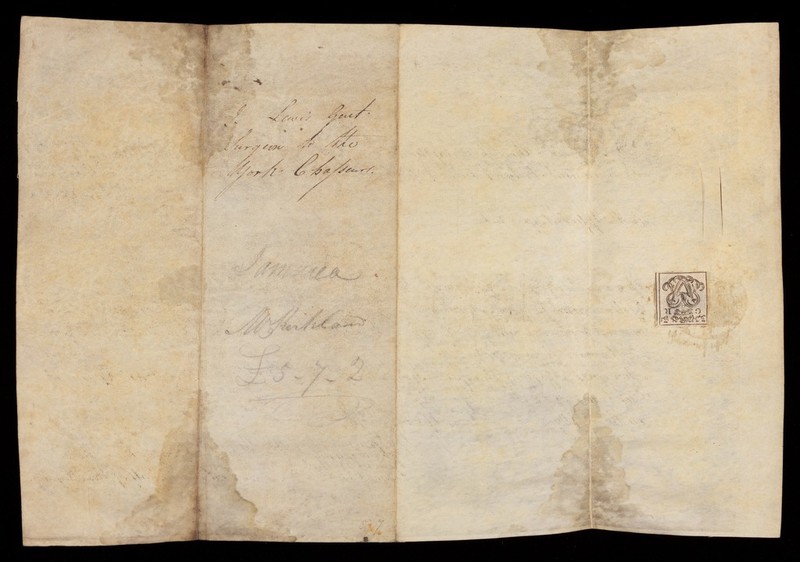 Lewis Gent.
Surgeon to the
York Chasseurs.
Jamaica
Mr Kirkland
£5-7-2